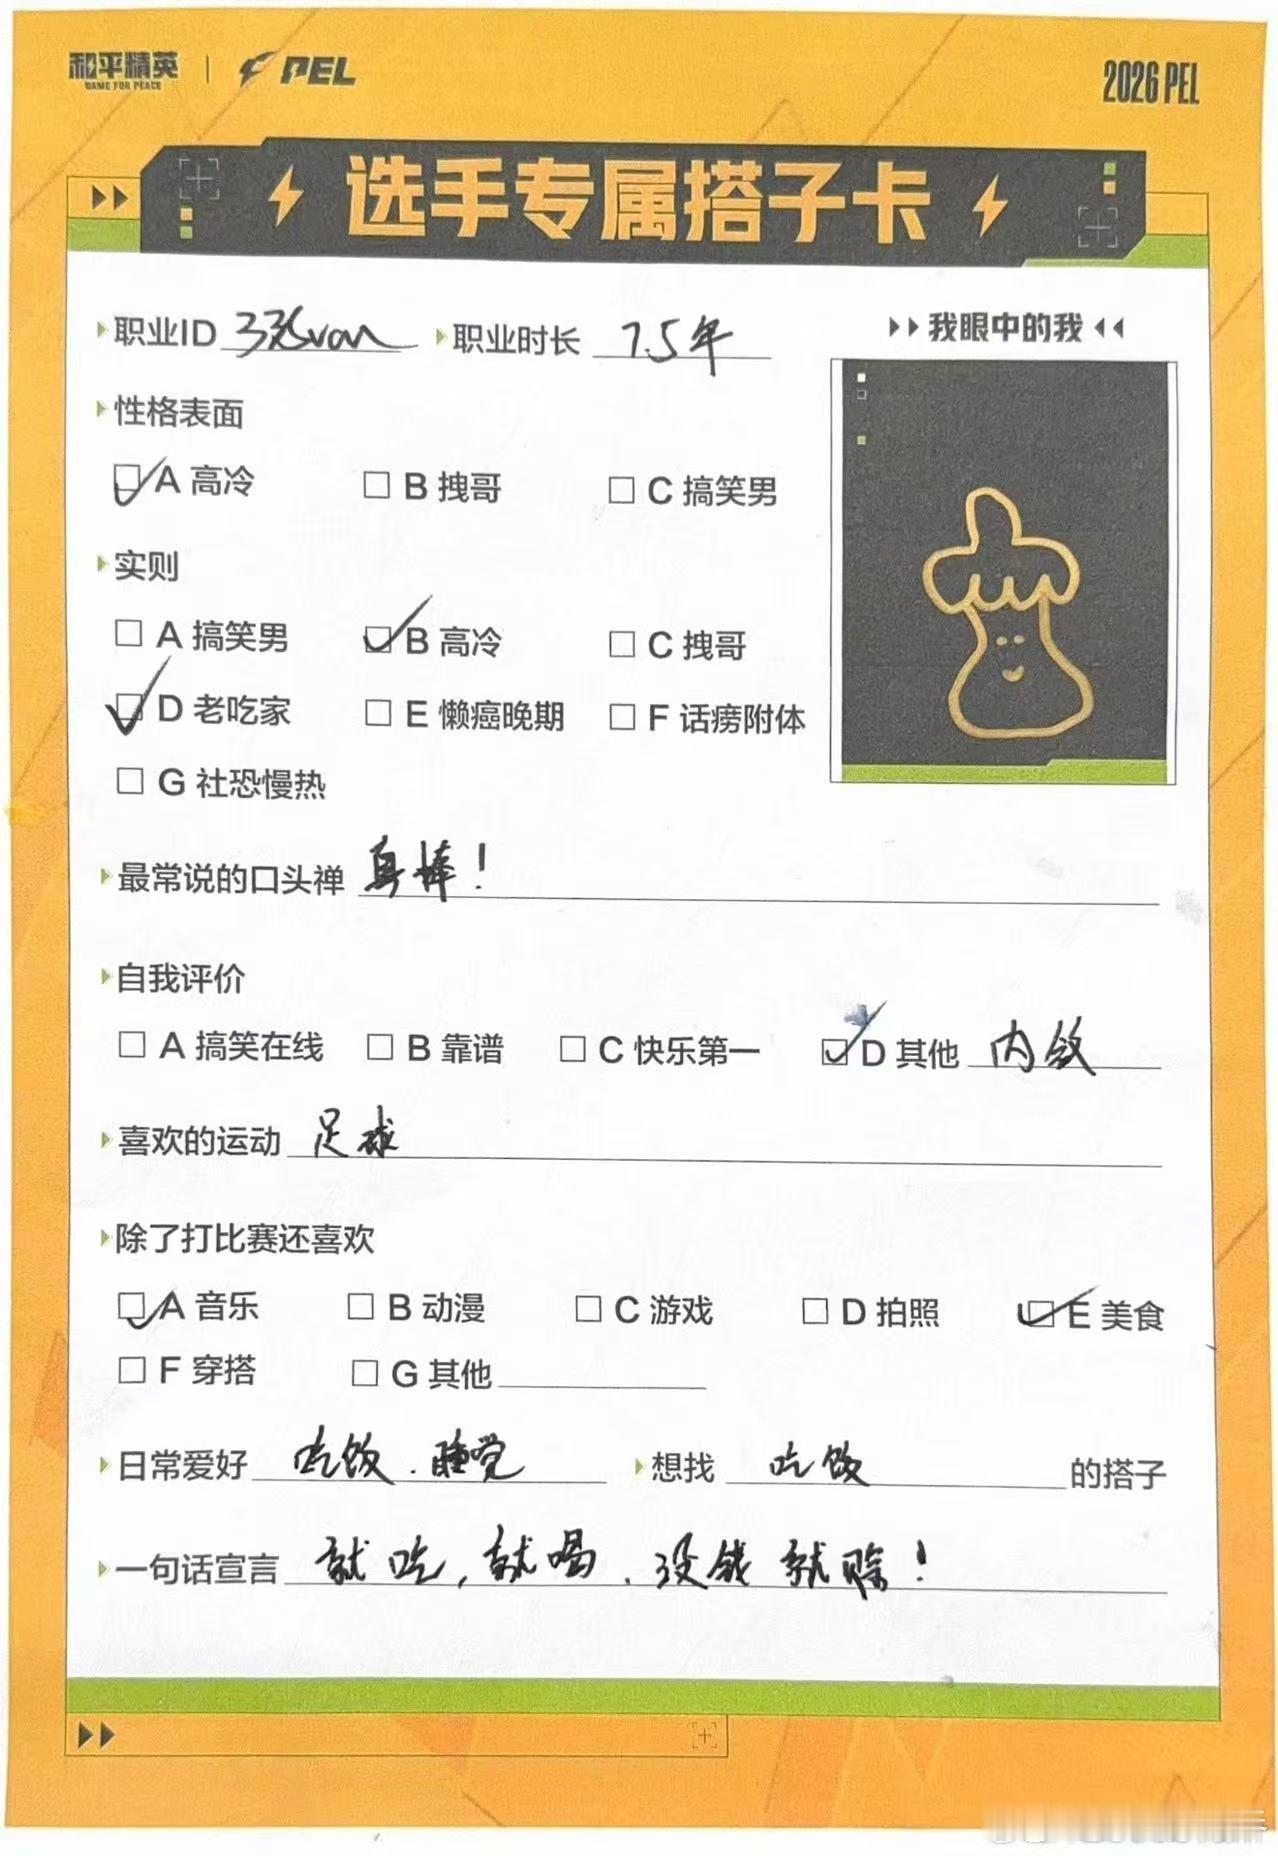 和平精英 GAME FOR PEACE | PEL
2026 PEL
选手专属搭子卡
职业ID 33Svan 职业时长 7.5年
我眼中的我
性格表面
A 高冷 B 拽哥 C 搞笑男
实则
A 搞笑男 B 高冷 C 拽哥
D 老吃家 E 懒癌晚期 F 话痨附体
G 社恐慢热
最常说的口头禅 真棒!
自我评价
A 搞笑在线 B 靠谱 C 快乐第一 D 其他 内敛
喜欢的运动 足球
除了打比赛还喜欢
A 音乐 B 动漫 C 游戏 D 拍照 E 美食
F 穿搭 G 其他
日常爱好 吃饭.睡觉 想找 吃饭 的搭子
一句话宣言 就吃,就喝.没钱就赊!